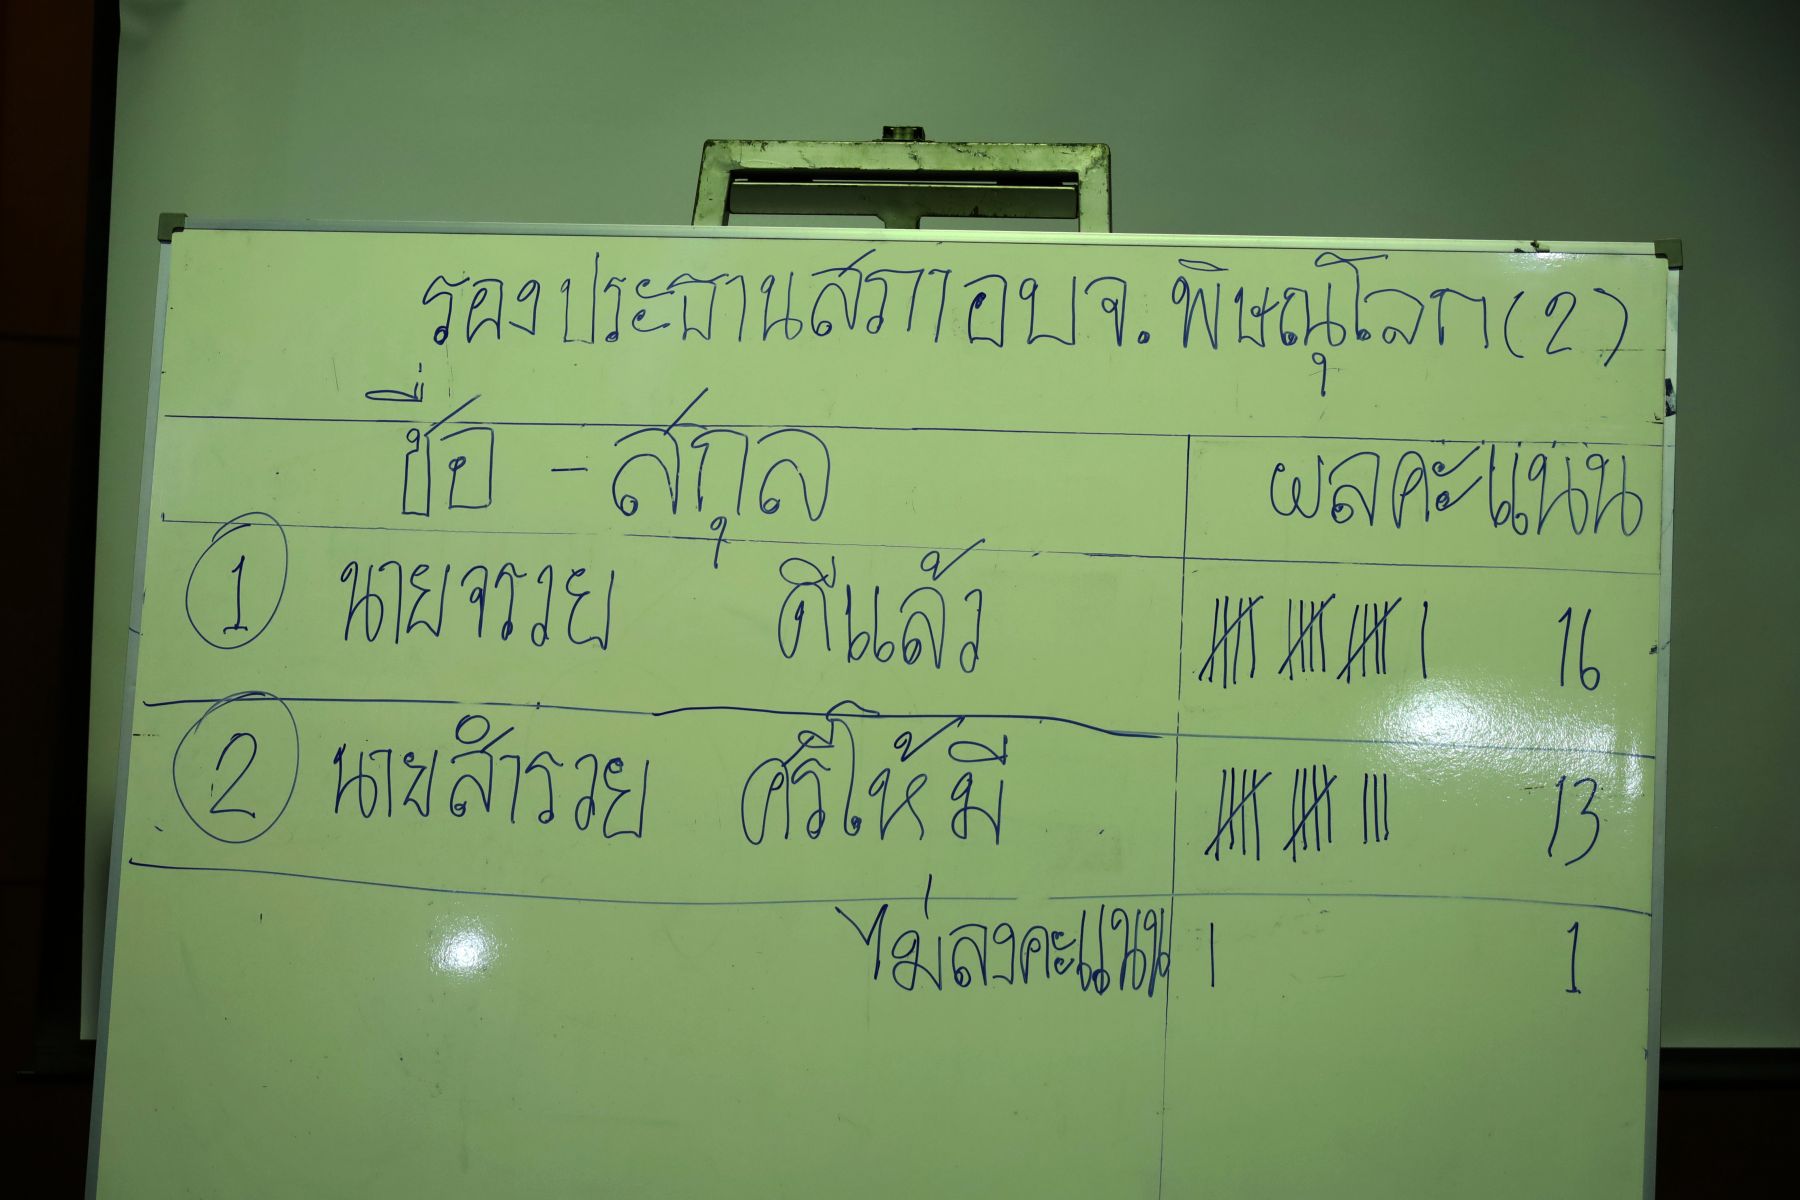 รองประธานสภาอบจ.พิษณุโลก(2)
ชื่อ - สกุล ผลคะแนน
1 นายจรวย ดีแล้ว 16
2 นายสำรวย ศรีให้มี 13
ไม่ลงคะแนน 1